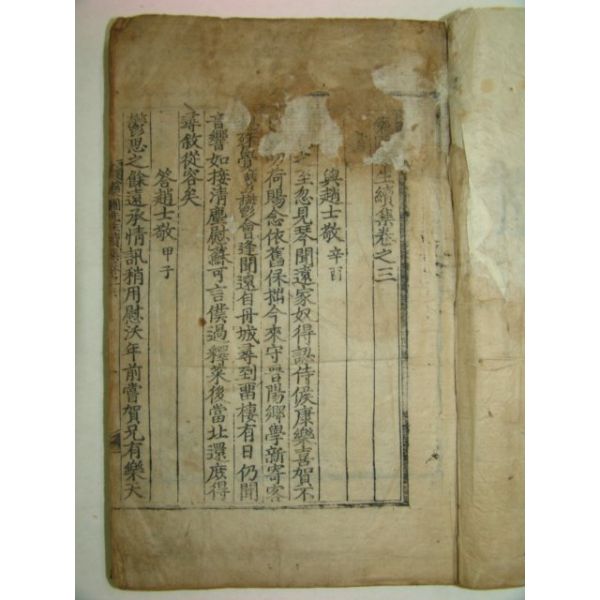 生續集卷之三
與趙士敬 辛酉
至忽見琴聞遠家奴得認侍候康樂喜賀不
荷賜念依舊保拙今來守晉陽鄉學新寄客
鬱會逢聞遠自丹城尋到留棲有日仍聞
音響如接清塵慰蘇可言僕過釋菜後當北還庶得
尋敘從容矣
答趙士敬 甲子
鬱思之餘遠承情訊稍用慰沃年前嘗賀兄有樂天